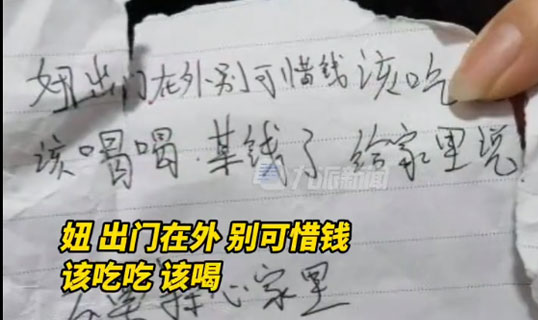 妞出门在外别可惜钱该吃
该喝喝.某钱了 给家里说
九派新闻
妞 出门在外 别可惜钱
该吃吃 该喝
心家里